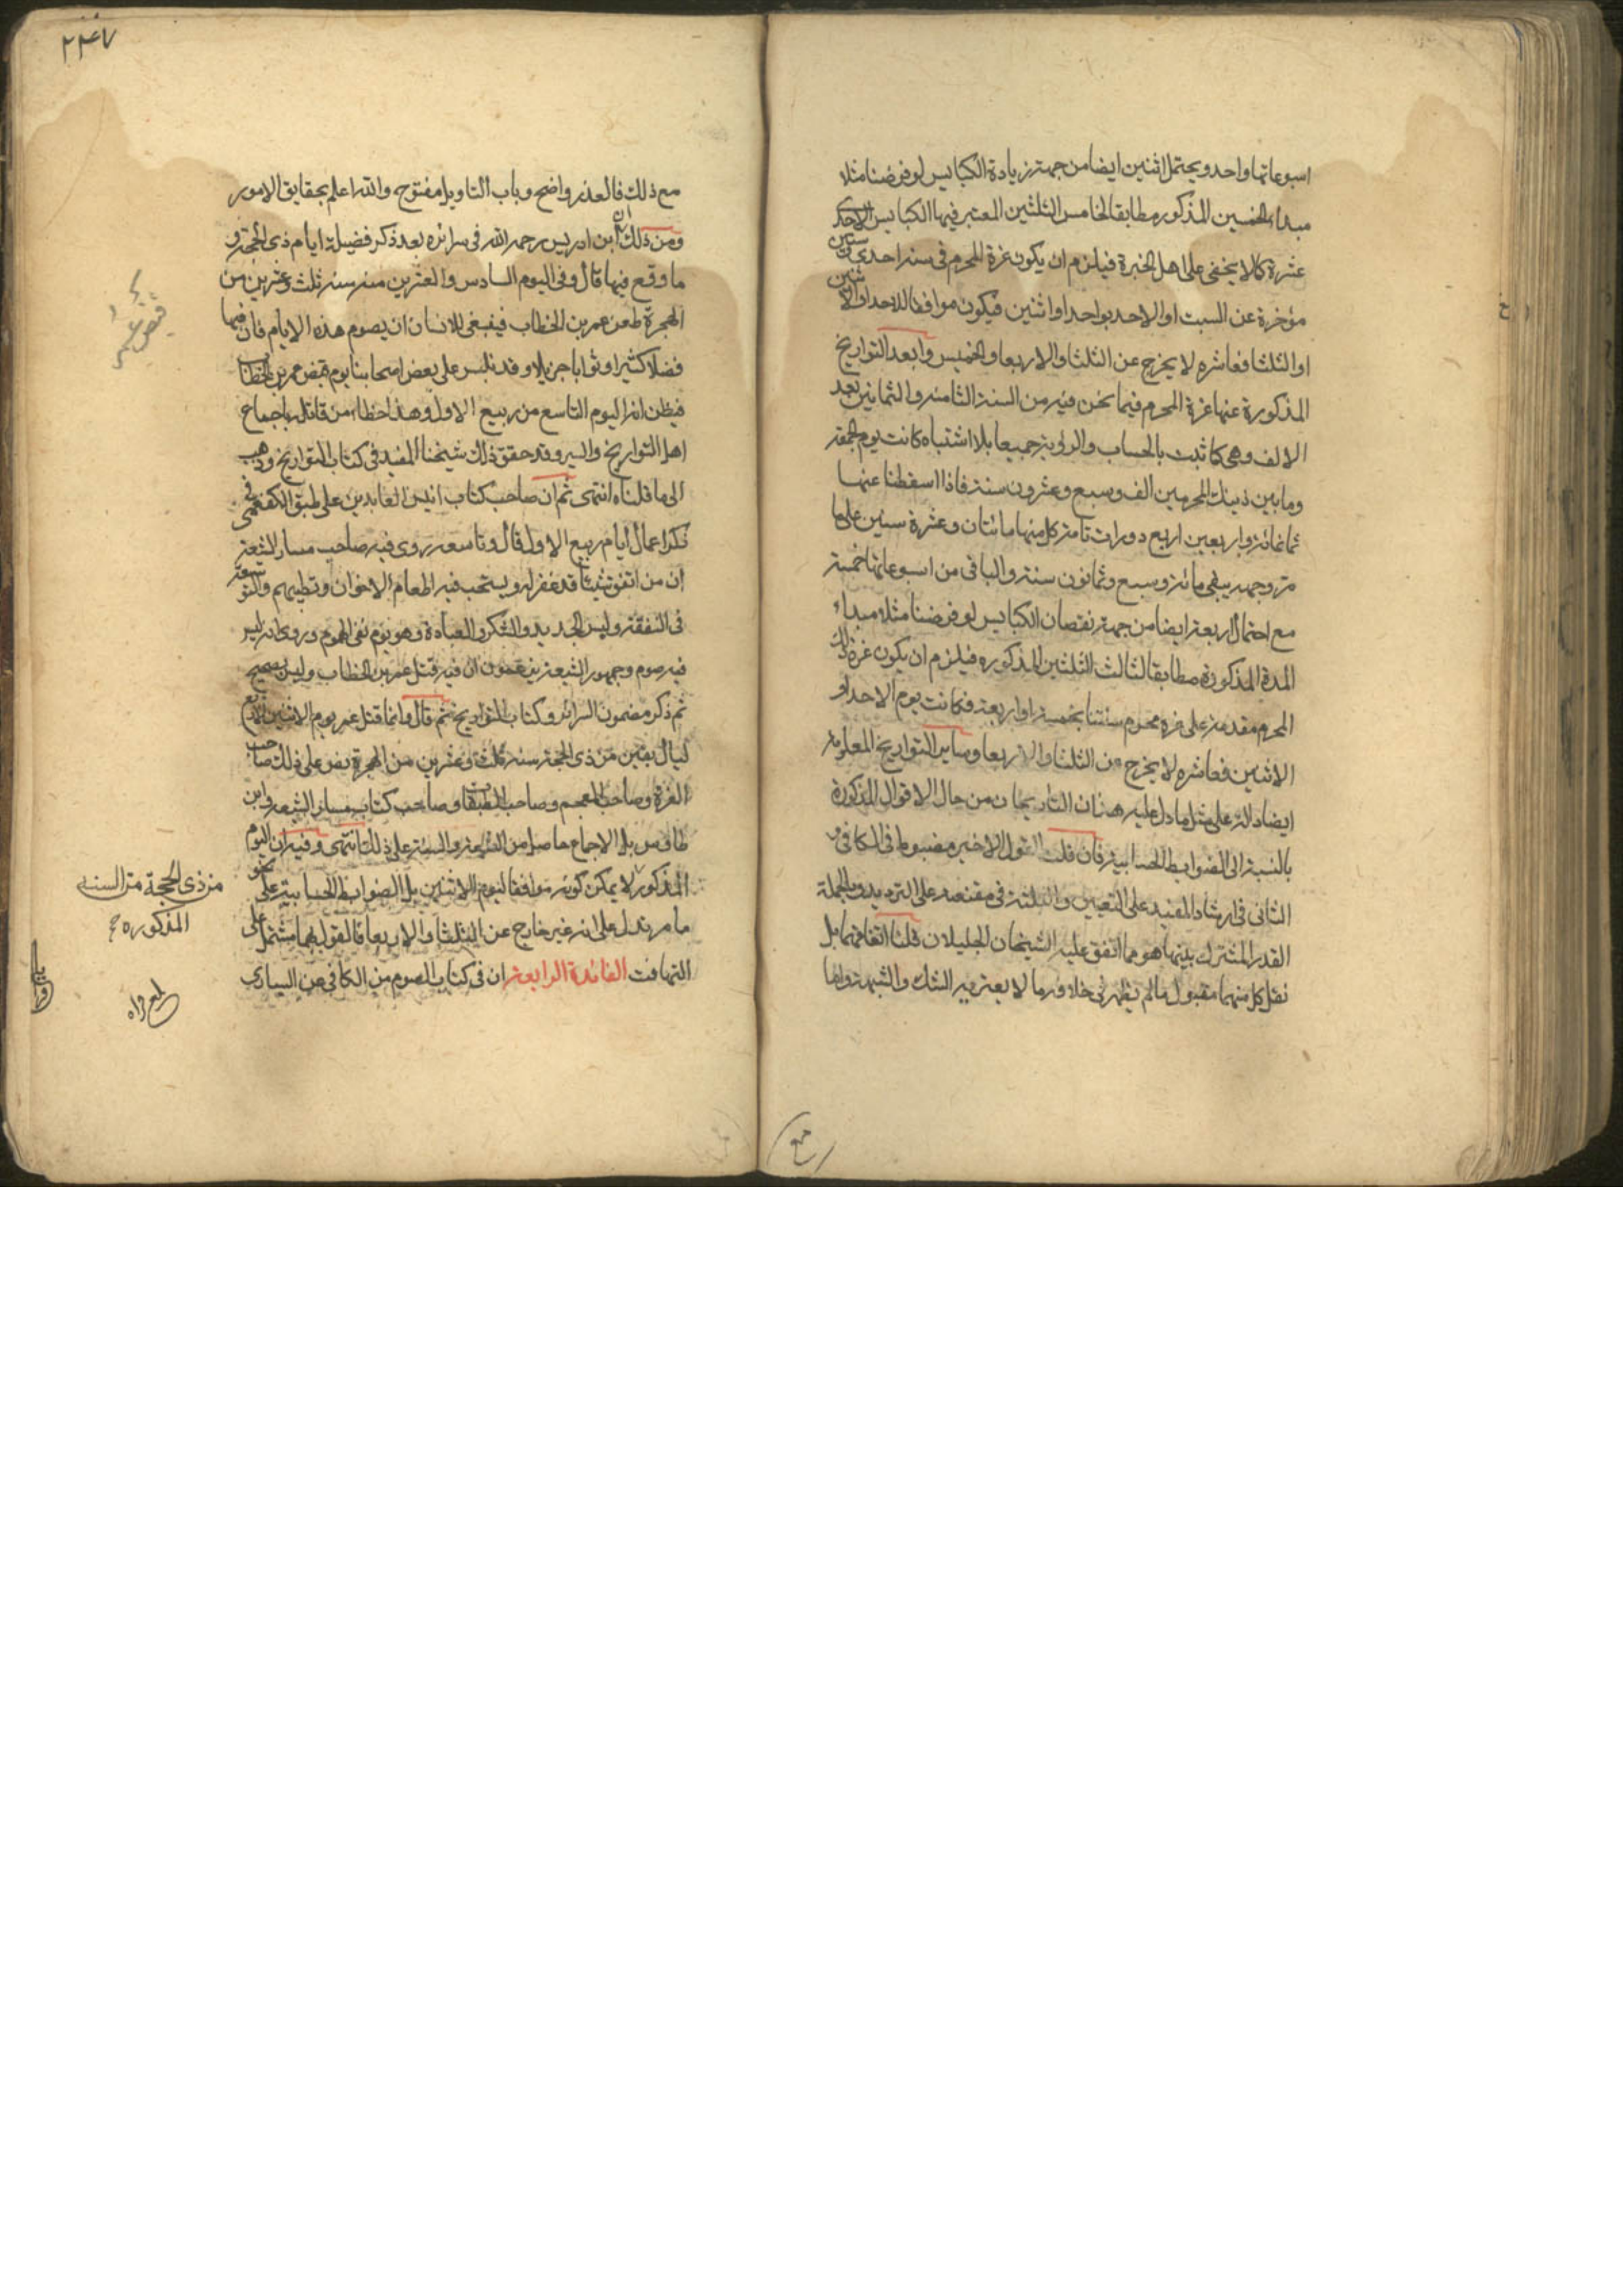 اسبوعاتها واحد ويحتمل اثنين ايضا من جهة زيادة الكبايس لو فرضنا مثلا
مبداء الخمسين المذكور مطابقا لخامس الثلثين المعتبر فيها الكبايس الاحدى
عشرة كما لا يخفى على اهل الخبرة فيلزم ان يكون غرة المحرم فى سنة احدى وستين
مؤخرة عن السبت او الاحد بواحد او اثنين فيكون موافقا للاحد او الاثنين
او الثلثا فعاشره لا يخرج عن الثلثا والاربعا والخميس وابعد التواريخ
المذكورة عنها غرة المحرم فيما نحن فيه من السنة الثامنة والثمانين بعد
الالف وهى كما ثبت بالحساب والرؤية جميعا بلا اشتباه كانت يوم الجمعة
وما بين ذينك المحرمين الف وسبع وعشرون سنة فاذا اسقطنا عنها
ثمانمائة واربعين اربع دورات تامة كل منها مائتان وعشرة سنين على ما
مر وجهه يبقى مائة وسبع وثمانون سنة والباقى من اسبوعاتها خمسة
مع احتمال اربعة ايضا من جهة نقصان الكبايس لو فرضنا مثلا مبداء
المدة المذكورة مطابقا لثالث الثلثين المذكوره فيلزم ان يكون غرة ذلك
المحرم مقدمة على غرة محرم سنتنا بخمسة او اربعة فكانت يوم الاحد او
الاثنين فعاشره لا يخرج عن الثلثا والاربعا وساير التواريخ المعلومة
ايضا دالة على مثل ما دل عليه هذان التاريخان من حال الاقوال المذكورة
بالنسبة الى الضوابط الحسابية فان قلت القول الاخير مضبوط فى الكافى و
الثانى فى ارشاد المفيد على التعيين والثلثة فى مقنعته على الترديد وبالجملة
القدر المشترك بينها هو مما اتفق عليه الشيخان الجليلان قلنا اتفاقهما بل
نقل كل منهما مقبول ما لم يظهر لى خلافه بما لا يعتريه الشك والشبهة واما
۲۴۷
مع ذلك فالعذر واضح وباب التاويل مفتوح والله اعلم بحقايق الامور
ومن ذلك ان ابن ادريس رحمه الله فى سرائره بعد ذكر فضيلة ايام ذى الحجة و
ما وقع فيها قال وفى اليوم السادس والعشرين منه سنة ثلث وعشرين من
الهجرة طعن عمر بن الخطاب فينبغى للانسان ان يصوم هذه الايام فان فيها
فضلا كثيرا وثوابا جزيلا وقد تلبس على بعض اصحابنا يوم قبض عمر بن الخطاب
فيظن انه اليوم التاسع من ربيع الاول وهذا خطاء من قائله باجماع
اهل التواريخ والسير وقد حقق ذلك شيخنا المفيد فى كتاب التواريخ وذهب
الى ما قلناه انتهى ثم ان صاحب كتاب انيس العابدين على طبق الكفعمى فى
ذكر اعمال ايام ربيع الاول قال وتاسعه روى فيه صاحب مسار الشيعة
ان من انفق شيئا قد غفر له ويستحب فيه اطعام الاخوان وتطييبهم والتوسعة
فى النفقة ولبس الجديد والشكر والعبادة وهو يوم نفى الهموم وروى انه ليس
فيه صوم وجمهور الشيعة يزعمون ان فيه قتل عمر بن الخطاب وليس بصحيح
ثم ذكر مضمون السرائر وكتاب التواريخ ثم قال وانما قتل عمر يوم الاثنين لاربع
ليال بقين من ذى الحجة سنة ثلث وعشرين من الهجرة نص على ذلك صاحب
الغرة وصاحب المعجم وصاحب الطبقات وصاحب كتاب مسار الشيعة وابن
طاوس بل الاجماع حاصل من الشيعة والسنة على ذلك انتهى وفيه ان اليوم
المذكور لا يمكن كونه موافقا ليوم الاثنين بل الضوابط الحسابية على نحو
ما مر تدل على انه غير خارج عن الثلثا والاربعا فالقول بهما مشتمل على
التهافت الفائدة الرابعة ان فى كتاب الصوم من الكافى عن السيارى
من ذى الحجة من السنة
المذكوره